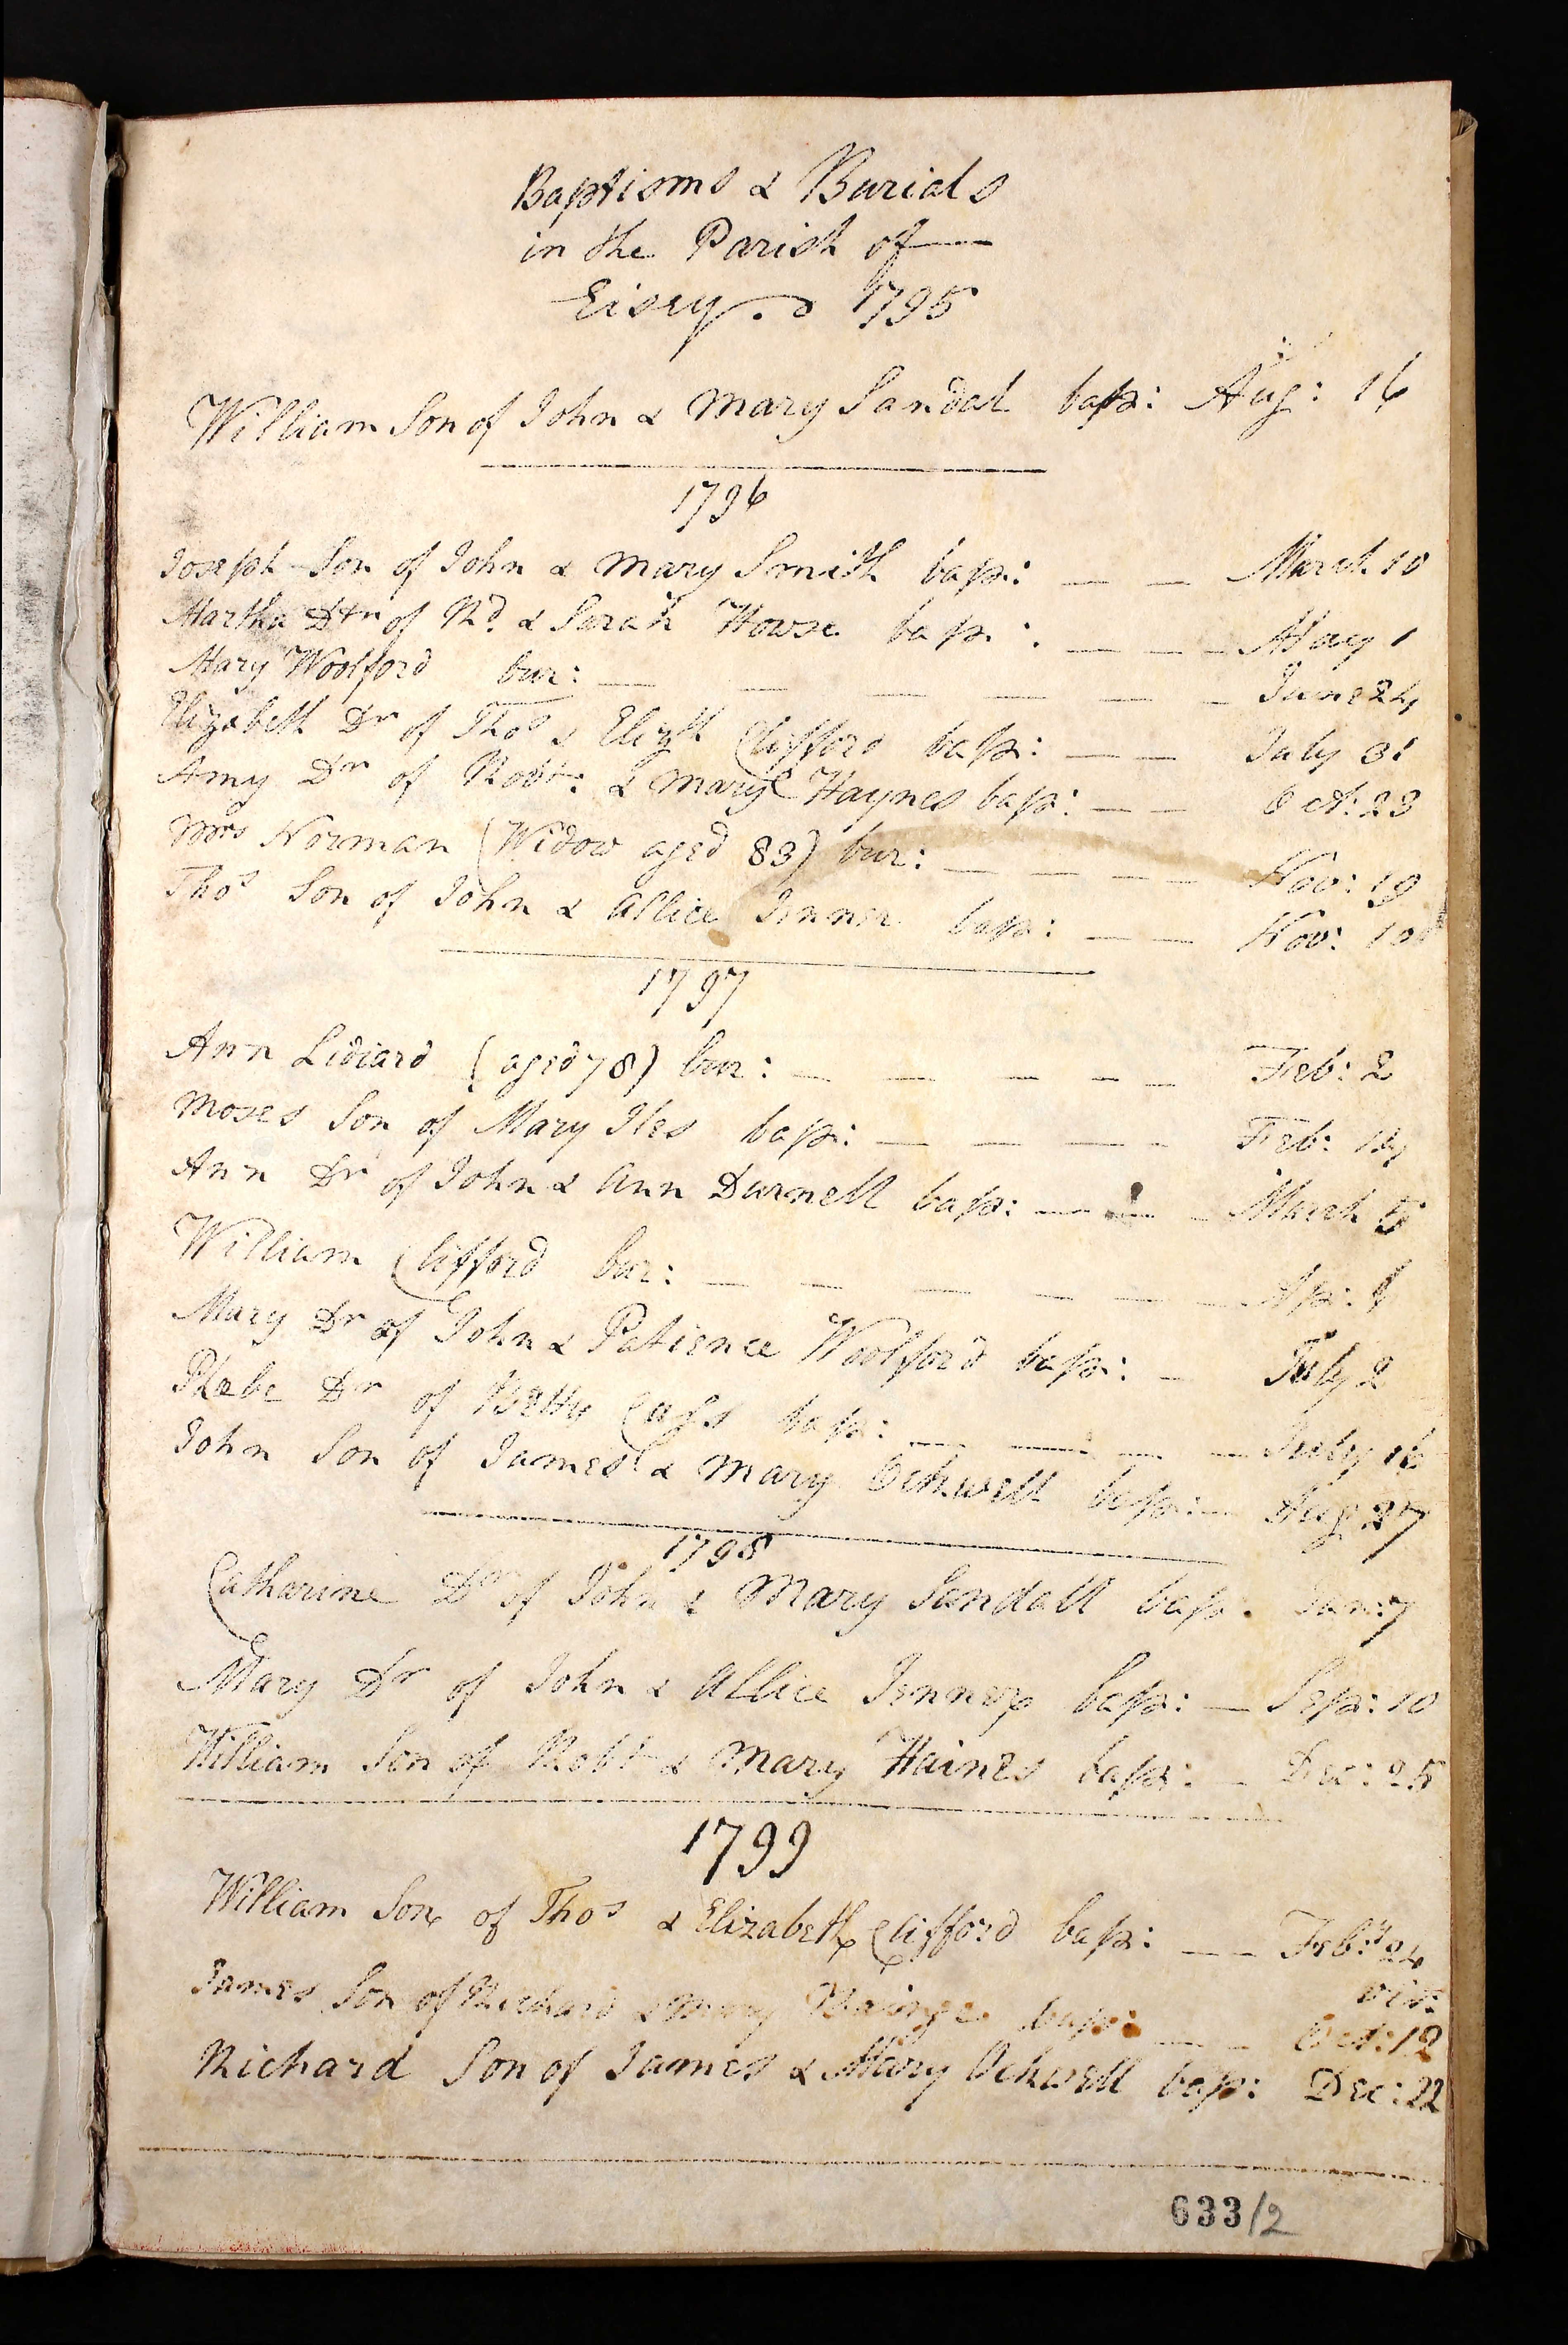 Baptisms & Burials
in the Parish of
Eisey. 1795
William Son of John & Mary Sandal bap: Aug: 16
1796
Joseph Son of John & Mary Smith bap: March 10
Martha Dtr of Rd. & Sarah Howse bap: May 1
Mary Woolford bur: June 24
Elizabeth Dr of Thos & Elizth Clifford bap: July 31
Amy Dr of Robt: & Mary Haynes bap: Oct: 23
Mrs Norman (Widow aged 83) bur: Nov: 19
Thos Son of John & Allice Jenner bap: Nov:
1797
Ann Lidiard (aged 78) bur: Feb: 2
Moses Son of Mary Iles bap: Feb:
Ann Dr of John & Ann Durnell bap: March 5
William Clifford bur: Ap:
Mary Dr of John & Patience Woolford bap: July 2
Phebe Dr of Betty bap: July 16
John Son of James & Mary Ockwell bap: Aug 27
1798
Catharine Dr of John & Mary Sandall bap: Jan: 7
Mary Dr of John & Allice Jenner bap: Sep: 10
William Son of Robt & Mary Haines bap: Dec: 25
1799
William Son of Thos & Elizabeth Clifford bap: Feby: 24
James Son of Richard & Mary bap: Oct: 12
Richard Son of James & Mary Ockwell bap: Dec: 22
633/2